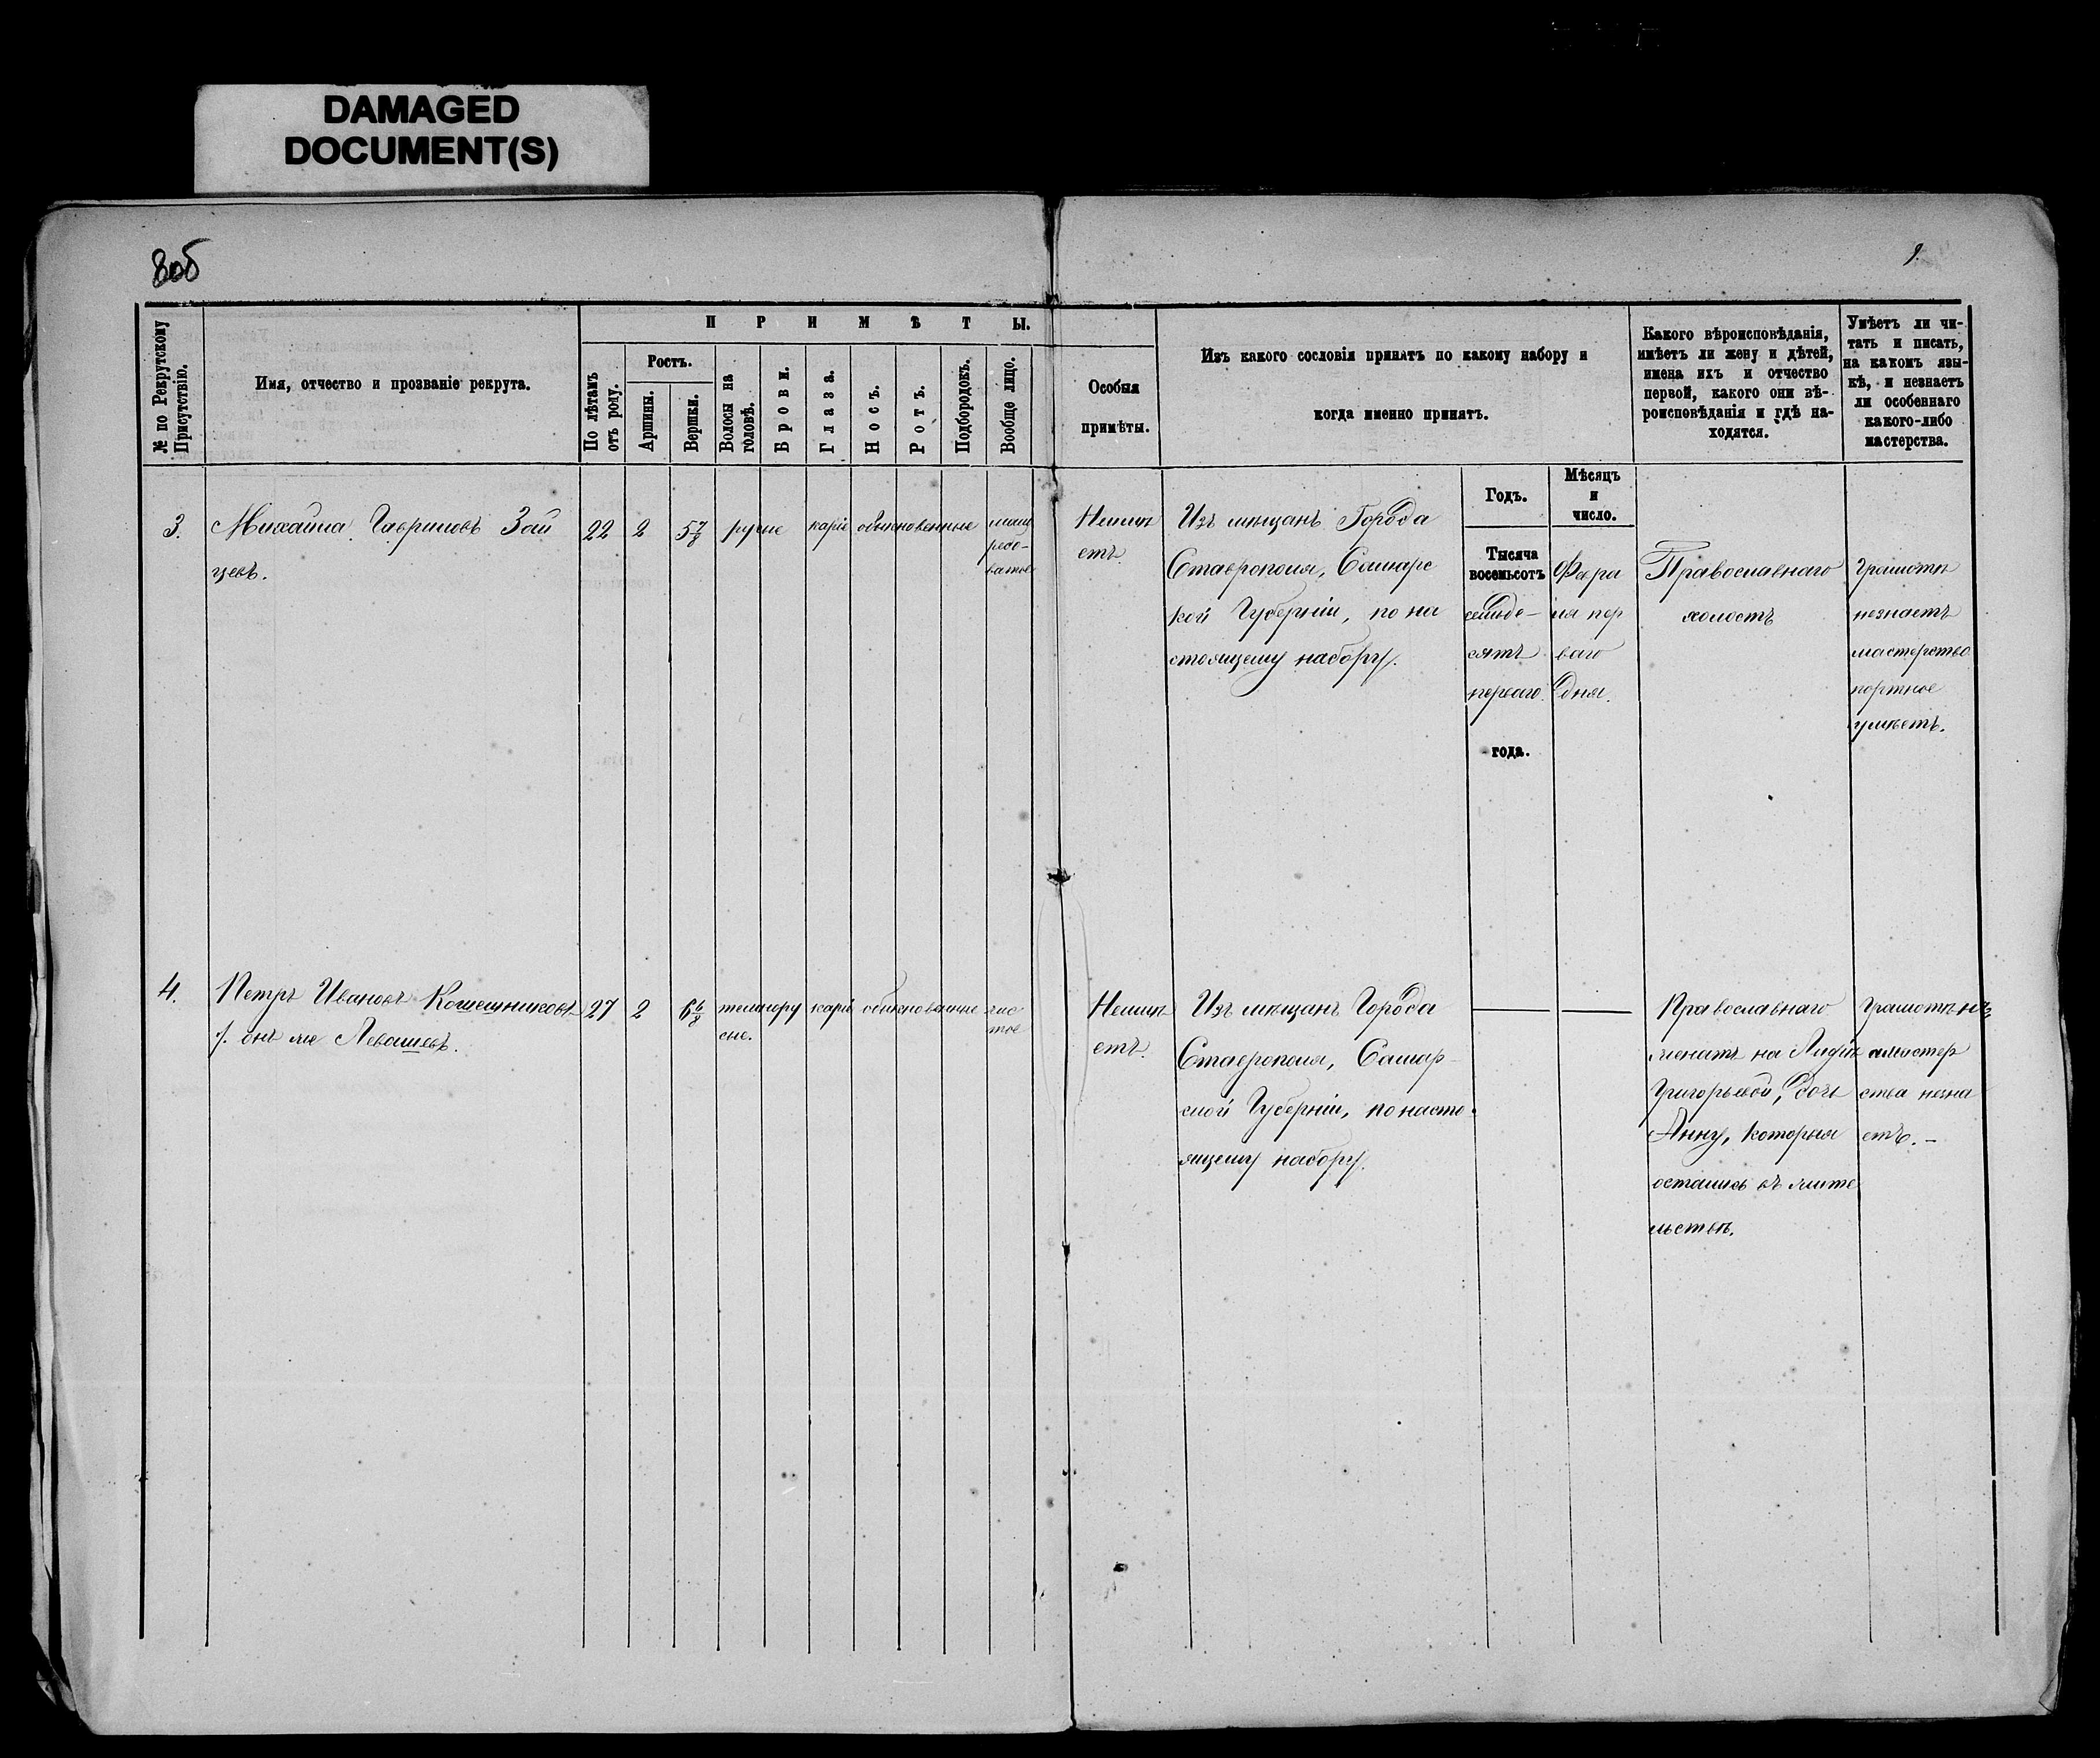 DAMAGED
DOCUMENT(S)
8об
9.
№ по Рекрутскому
Присутствію.
Имя, отчество и прозваніе рекрута.
ПРИМѢТЫ.
По лѣтамъ
отъ роду.
Ростъ.
Аршины.
Вершки.
Волосы на
головѣ.
Брови.
Глаза.
Носъ.
Ротъ.
Подбородокъ.
Вообще лицо.
Особыя
примѣты.
Изъ какого сословія принятъ по какому набору и
когда именно принятъ.
Какого вѣроисповѣданія,
имѣетъ ли жену и дѣтей,
имена ихъ и отчество
первой, какого они вѣ-
роисповѣданія и гдѣ на-
ходятся.
Умѣетъ ли чи-
тать и писать,
на какомъ язы-
кѣ, и незнаетъ
ли особеннаго
какого-либо
мастерства.
Годъ.
Мѣсяцъ
и
число.
3.
Михаила Гавриловъ Зай
цевъ.
22
2
5 7/8
русые
каріе
обыкновенные
Неимѣ
етъ.
Изъ мѣщанъ Города
Ставрополя, Самарс
кой Губерніи, по на
стоящему набору.
Тысяча
восемьсотъ
семьде-
сятъ
перваго
года.
Февра
ля пер
ваго
дня.
Православнаго
холостъ
Грамоты
незнаетъ
мастерство
портное
умѣетъ.
4.
Петръ Ивановъ Кошешниковъ
онъ же Левашевъ.
27
2
6 6/8
темнору
сые.
каріе
обыкновенные
чис
тое
Неимѣ
етъ.
Изъ мѣщанъ Города
Ставрополя, Самар-
ской Губерніи, по насто
ящему набору.
Православнаго
женатъ на Лидіи
Григорьевой, дочь
Анну, которыя
остались въ жите
льствѣ.
Грамотѣ н
мастер
ства незна
етъ.-